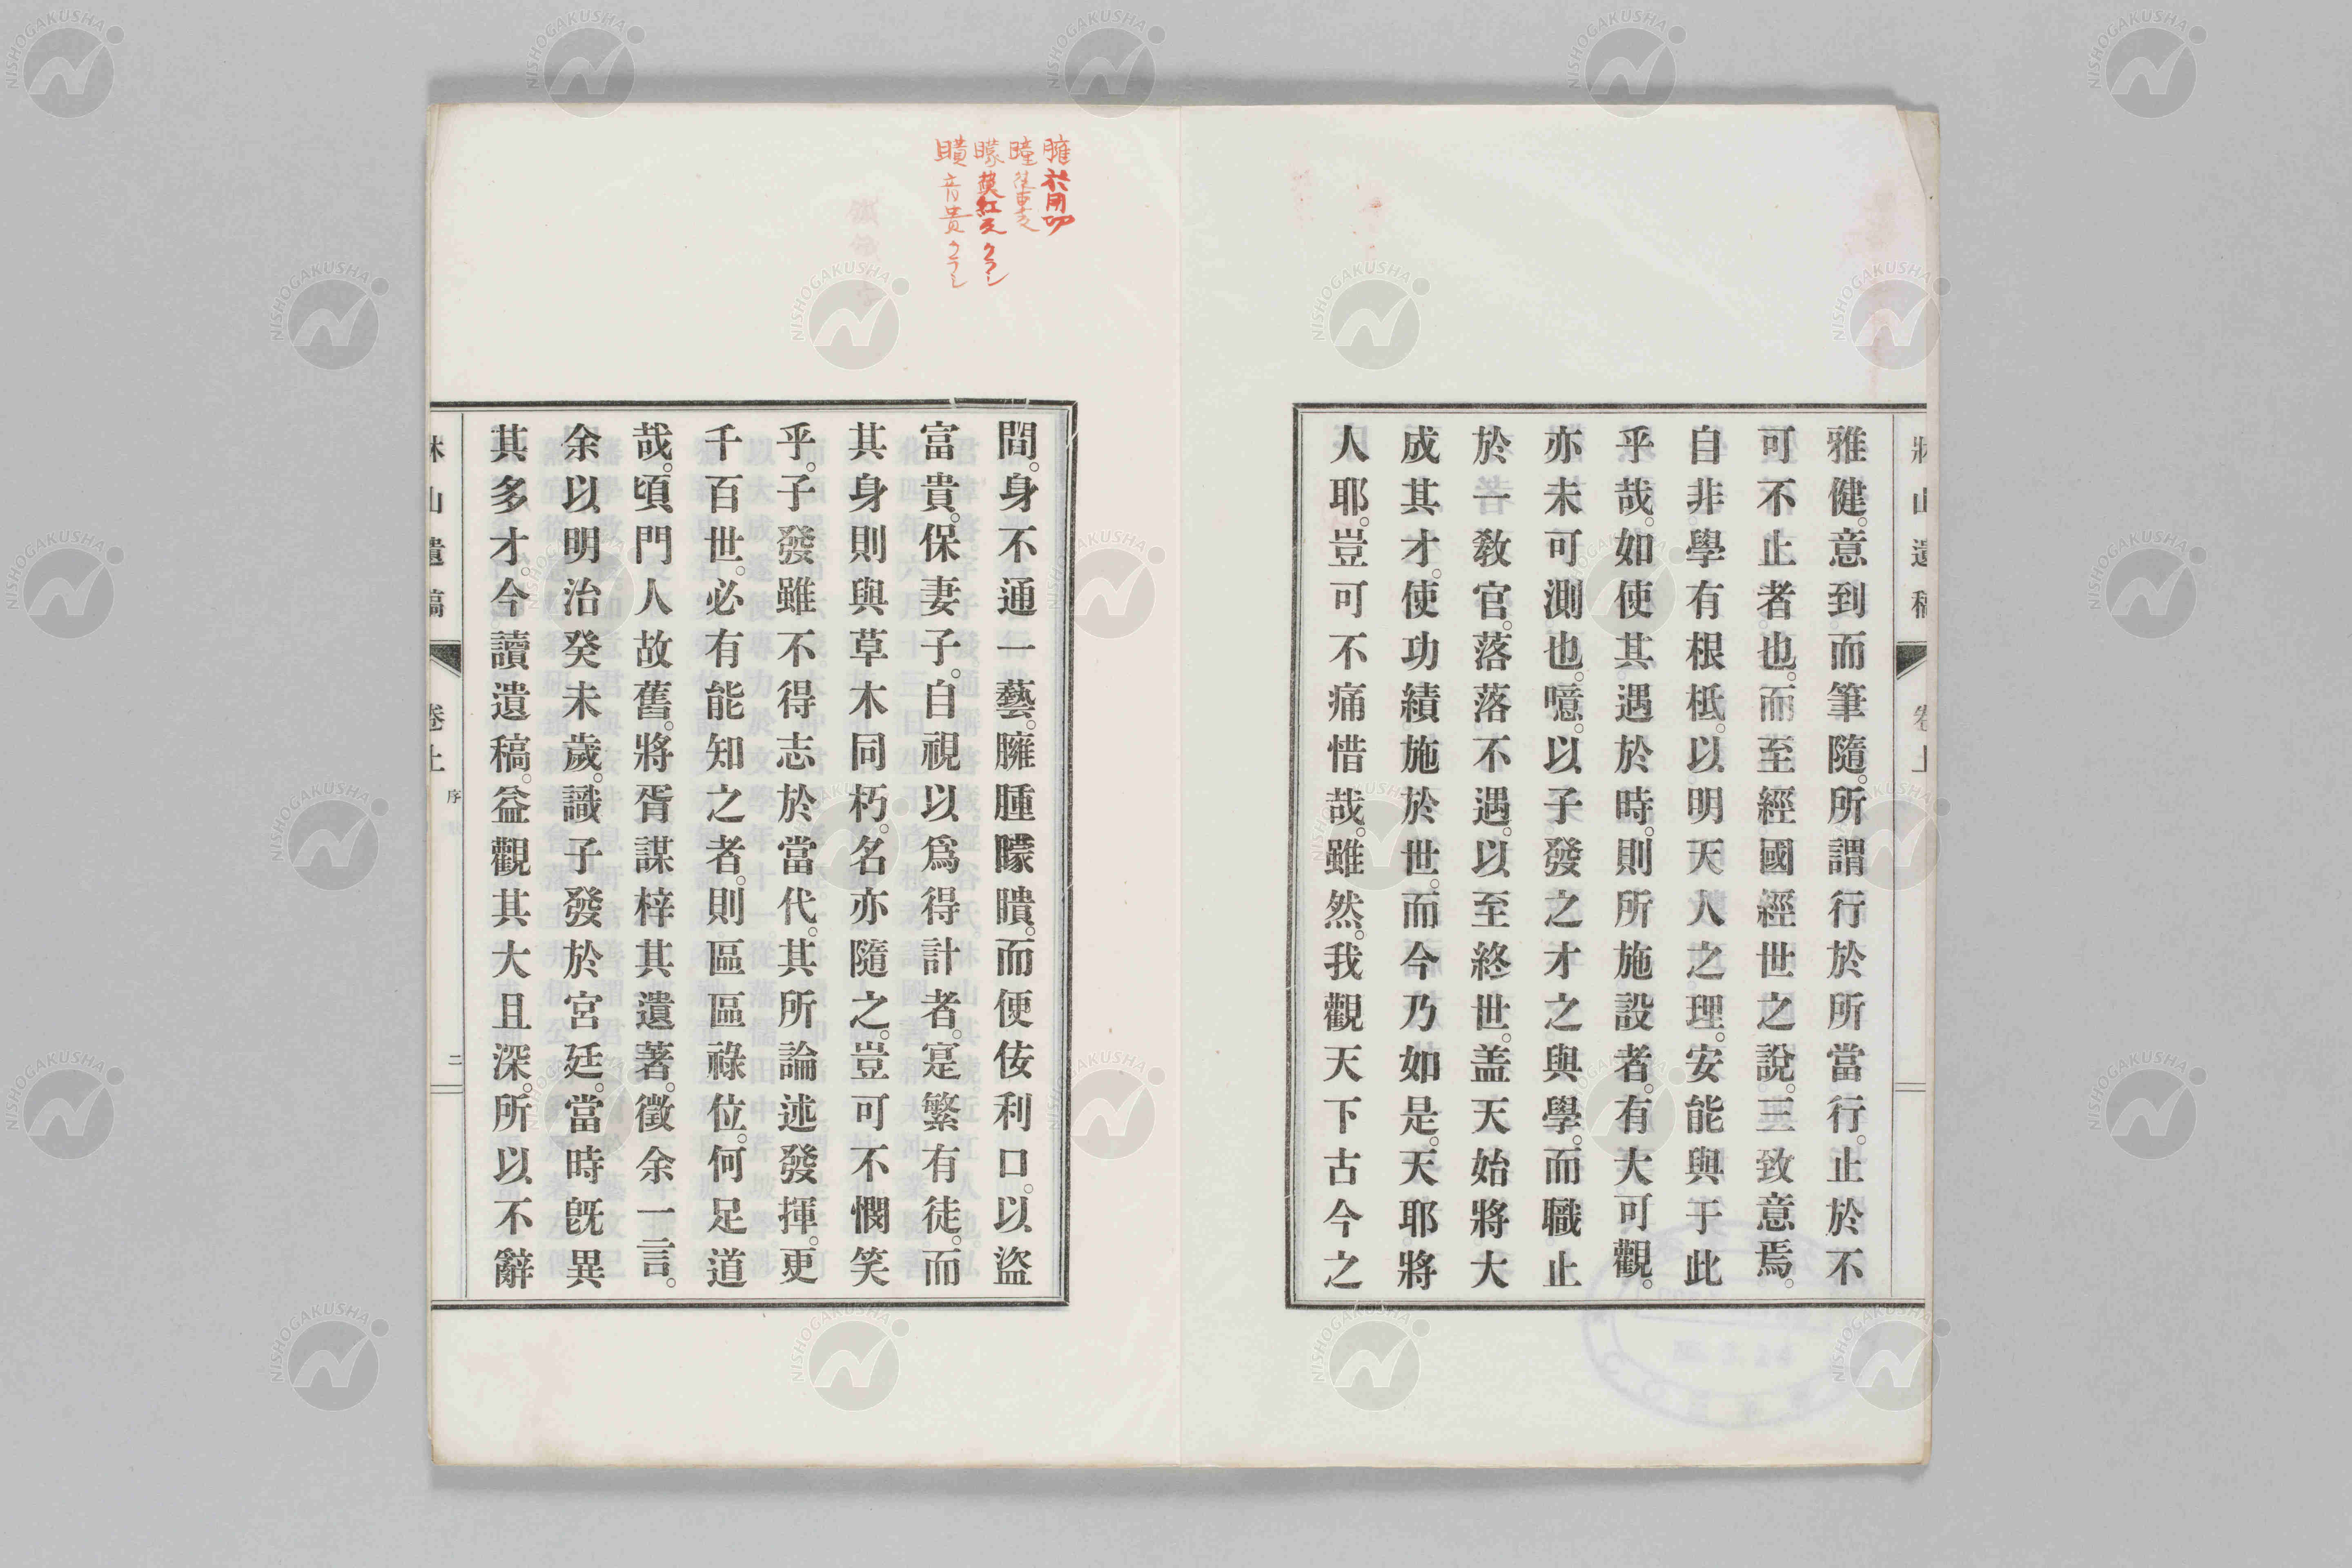 雅健。意到而筆隨。所謂行於所當行。止於不
可不止者也。而至經國經世之說。三致意焉。
自非學有根柢。以明天人之理。安能與于此
乎哉。如使其遇於時。則所施設者。有大可觀。
亦未可測也。噫。以子發之才之與學。而職止
於一敎官。落落不遇。以至終世。盖天始將大
成其才。使功績施於世。而今乃如是。天耶。將
人耶。豈可不痛惜哉。雖然。我觀天下古今之
臃 於用切
曈
矇 莫紅反 クラシ
瞶 音貴 クラシ
間。身不通一藝。臃腫矇瞶。而便佞利口。以盜
富貴。保妻子。自視以爲得計者。寔繁有徒。而
其身則與草木同朽。名亦隨之。豈可不憫笑
乎。子發雖不得志於當代。其所論述發揮。更
千百世。必有能知之者。則區區祿位。何足道
哉。頃門人故舊。將胥謀梓其遺著。徵余一言。
余以明治癸未歲。識子發於宮廷。當時旣異
其多才。今讀遺稿。益觀其大且深。所以不辭
山遺稿 卷上 序 二
NISHOGAKUSHA